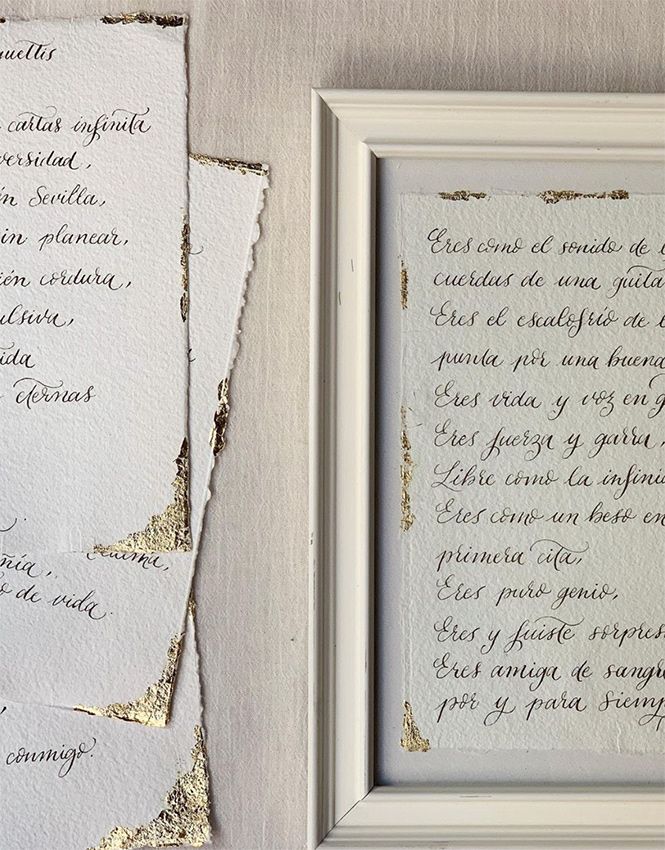 cartas infinita
versidad,
Sevilla,
sin planear,
ién cordura,
ulsiva,
ida
eternas
ñía,
o de vida.
conmigo.
Eres como el sonido de
cuerdas de una guita
Eres el escalofrío de
punta por una buena
Eres vida y voz en g
Eres fuerza y garra,
Libre como la infini
Eres como un beso en
primera cita,
Eres puro genio,
Eres y fuiste sorpres
Eres amiga de sangre
por y para siemp